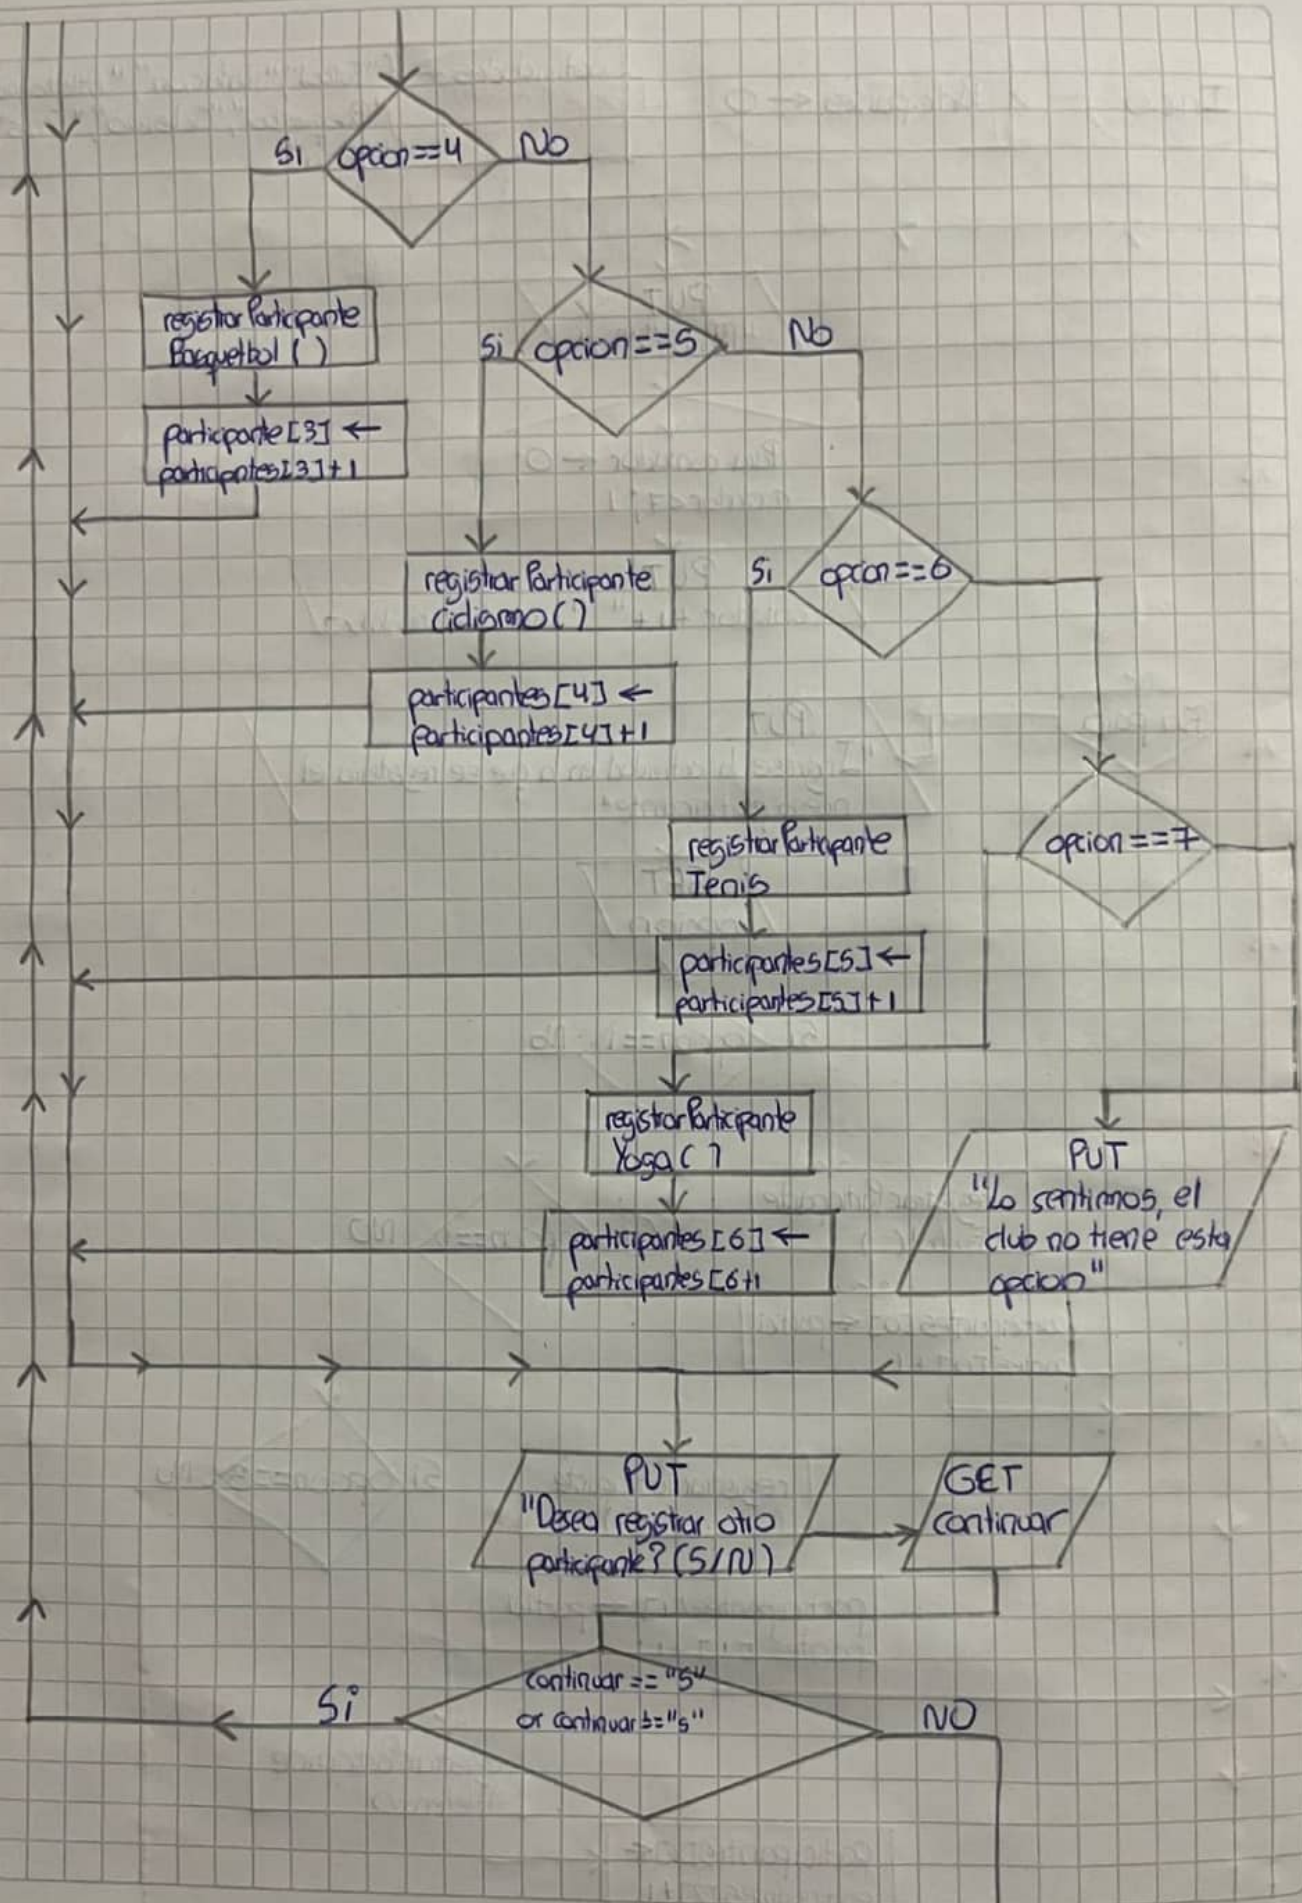 opcion==4
Si
No
registrarParticipante
Basquetbol ( )
participante[3] ←
participantes[3]+1
opcion==5
Si
No
registrarParticipante
Ciclismo ( )
participantes[4] ←
participantes[4]+1
opcion==6
Si
registrarParticipante
Tenis
participantes[5] ←
participantes[5]+1
opcion==7
registrarParticipante
Yoga ( )
participantes[6] ←
participantes[6+1
PUT
"Lo sentimos, el
club no tiene esta
opcion"
PUT
"Desea registrar otro
participante? (S/N)
GET
continuar
continuar == "S"
or continuar == "s"
Si
NO